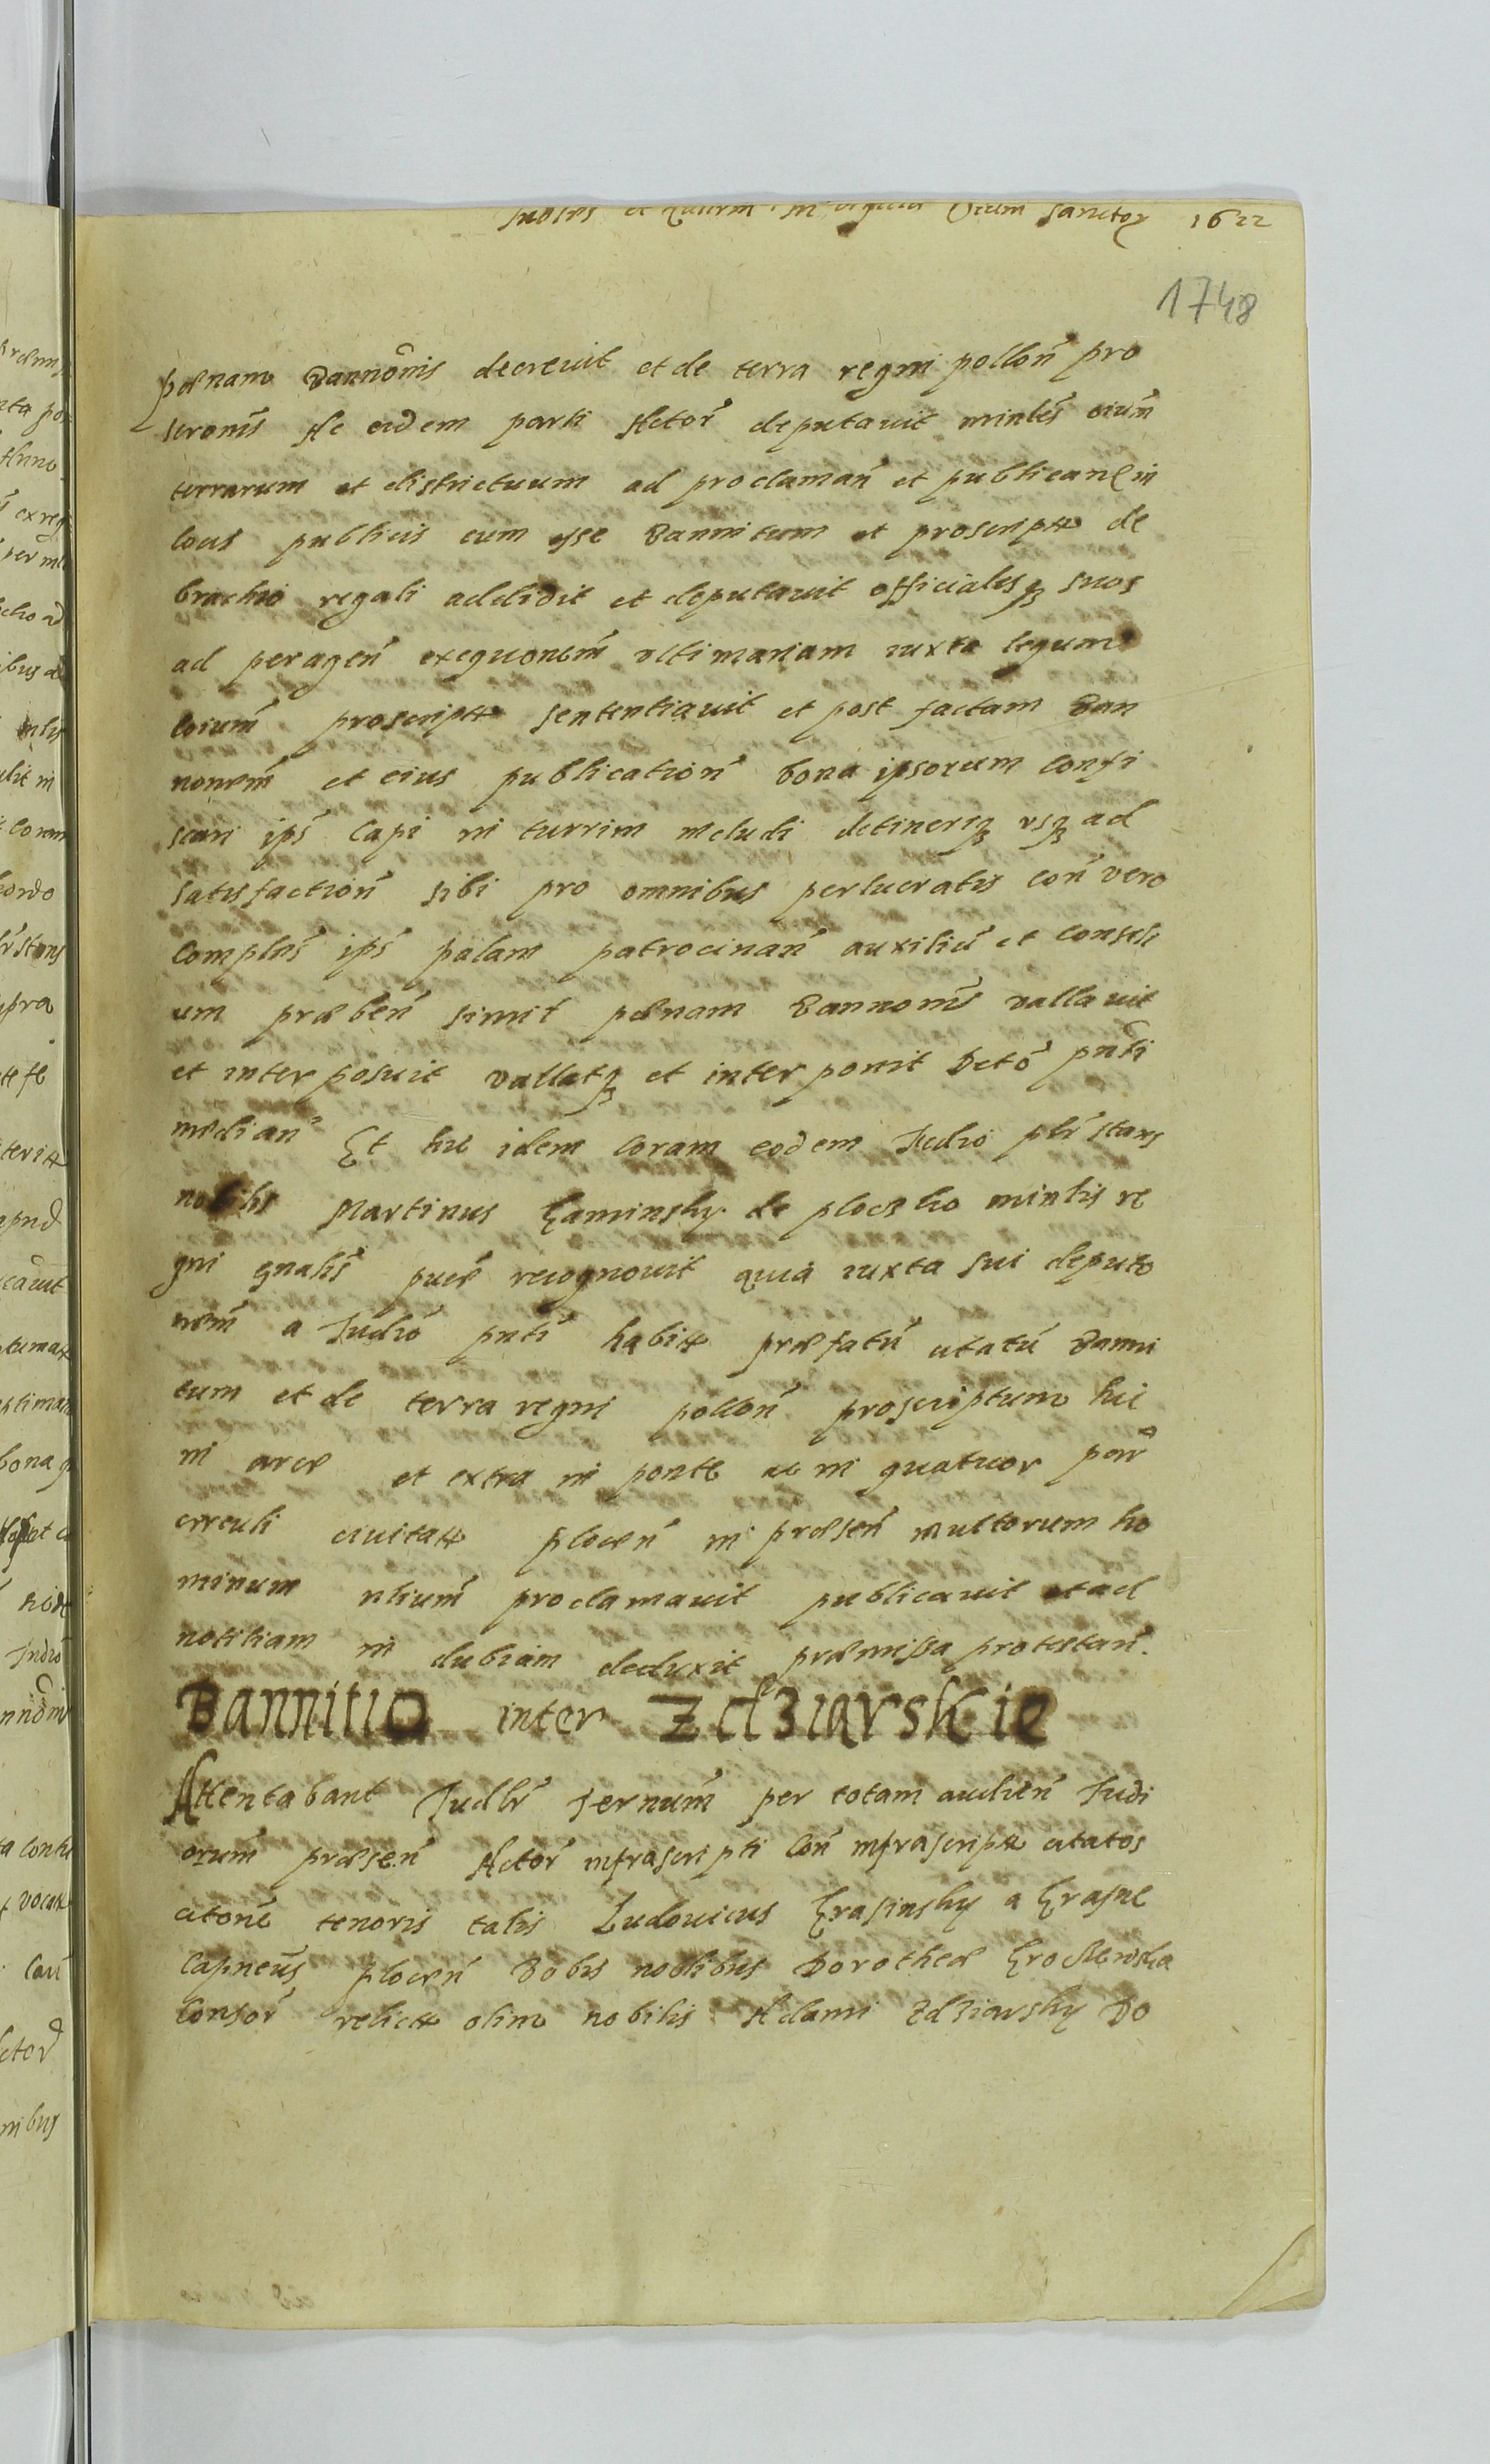 Sanctor 1622
1748
pœnam Bannonis decrevit et de terra regni pollon pro
scronis Ac eidem parti Actor deputavit mintles oium
terrarum et districtuum ad proclaman et publican in
locis publicis eum esse Bannitum et proscript de
brachio regali addidit et deputavit officialesq suos
ad peragen exequonem ultimariam iuxta legum
coium proscript sententiavit et post factam Ban
nonem et eius publication bona ipsorum confi
scari ips capi in turrim includi detineriq usq ad
satisfaction sibi pro omnibus perlucratis con vero
complus ips palam patrocinan auxiliu et consili
um præben simil pœnam Bannonis vallavit
et interposuit vallatq et interponit Dcto pnti
median Et hic idem coram eodem Judio plr stans
nobilis Martinus Kaminsky de plocsko mintlis re
gni gnalis pucæ recognovit quia iuxta sui deputo
nem a Judio pnti habit præfatu citatu Banni
tum et de terra regni pollon proscriptum hic
in arce et extra in ponte ac in quatuor par
circuli civitat plocen in præsen multorum ho
minum ntium proclamavit publicavit et ad
notitiam in dubiam deduxit præmissa protestan.
Bannitio inter Zdziarskie
Attentabant Judlr ternum per totam audien Judi
orum præsen Actor infrascripti con infrascript citatos
citone tenoris talis Ludovicus Krasinsky a Krasne
Capneus plocen Vobis nobilibus Dorotheæ
consor relict olim nobilis Adami Zdziarsky Do